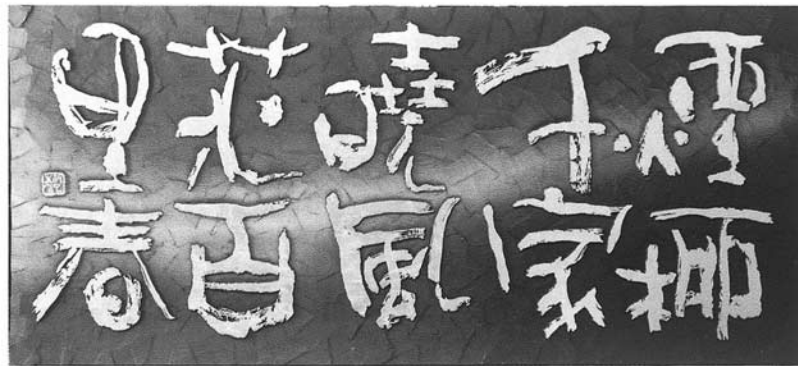 煙柳
千家
曉風
花百
里春